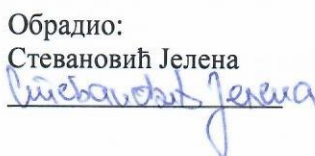 Обрадио:
Стевановић Јелена
Стевановић Јелена